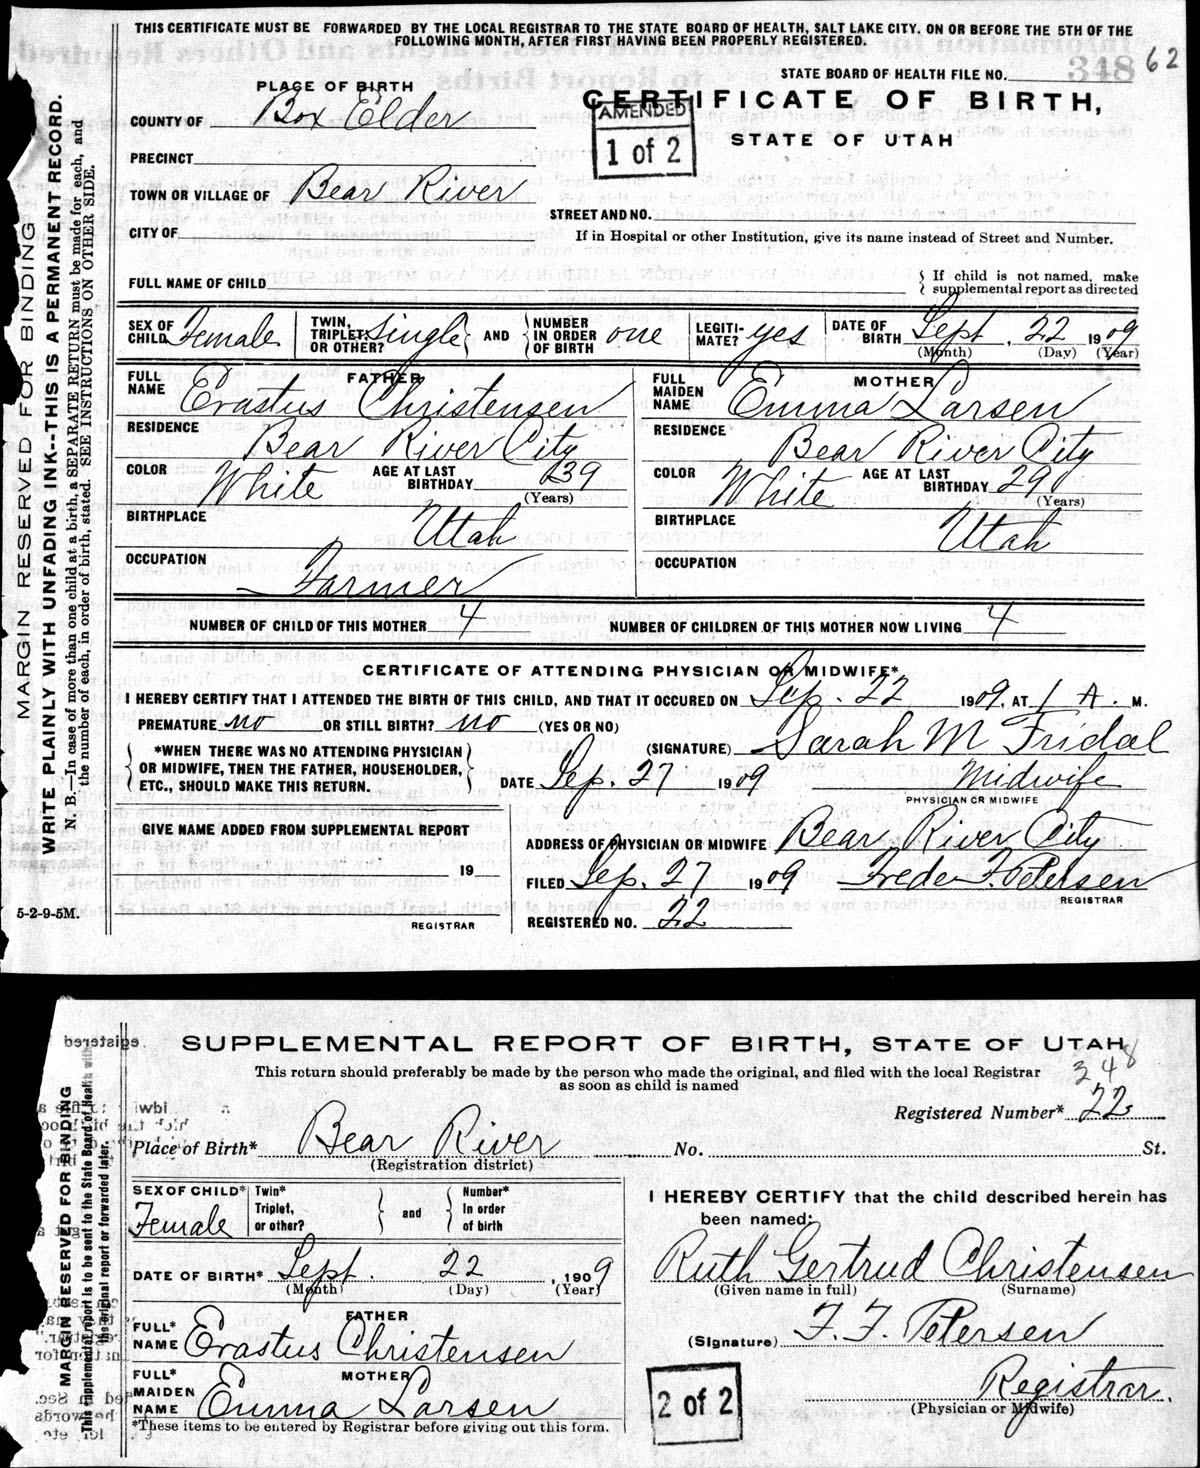 THIS CERTIFICATE MUST BE FORWARDED BY THE LOCAL REGISTRAR TO THE STATE BOARD OF HEALTH, SALT LAKE CITY, ON OR BEFORE THE 5TH OF THE
FOLLOWING MONTH, AFTER FIRST HAVING BEEN PROPERLY REGISTERED.
62
STATE BOARD OF HEALTH FILE NO. 348
PLACE OF BIRTH
CERTIFICATE OF BIRTH,
COUNTY OF Box Elder
AMENDED
1 of 2
STATE OF UTAH
PRECINCT
TOWN OR VILLAGE OF Bear River
STREET AND NO.
CITY OF
If in Hospital or other Institution, give its name instead of Street and Number.
FULL NAME OF CHILD
{ If child is not named, make
supplemental report as directed
SEX OF CHILD Female TWIN, TRIPLET, OR OTHER? Single AND NUMBER IN ORDER OF BIRTH one LEGITIMATE? yes DATE OF BIRTH Sept. 22 1909
(Month) (Day) (Year)
FATHER
FULL NAME Erastus Christensen
MOTHER
FULL MAIDEN NAME Emma Larsen
RESIDENCE Bear River City
RESIDENCE Bear River City
COLOR White AGE AT LAST BIRTHDAY 39 (Years)
COLOR White AGE AT LAST BIRTHDAY 29 (Years)
BIRTHPLACE Utah
BIRTHPLACE Utah
OCCUPATION Farmer
OCCUPATION
NUMBER OF CHILD OF THIS MOTHER 4 NUMBER OF CHILDREN OF THIS MOTHER NOW LIVING 4
CERTIFICATE OF ATTENDING PHYSICIAN OR MIDWIFE*
I HEREBY CERTIFY THAT I ATTENDED THE BIRTH OF THIS CHILD, AND THAT IT OCCURED ON Sep. 22 1909, AT 1 A. M.
PREMATURE no OR STILL BIRTH? no (YES OR NO)
(SIGNATURE) Sarah M Fridal
{ *WHEN THERE WAS NO ATTENDING PHYSICIAN
OR MIDWIFE, THEN THE FATHER, HOUSEHOLDER,
ETC., SHOULD MAKE THIS RETURN. }
DATE Sep. 27 1909 Midwife
PHYSICIAN OR MIDWIFE
GIVE NAME ADDED FROM SUPPLEMENTAL REPORT
19
REGISTRAR
ADDRESS OF PHYSICIAN OR MIDWIFE Bear River City
FILED Sep. 27 1909 Frede F. Petersen
REGISTRAR
REGISTERED NO. 22
5-2-9-5M.
MARGIN RESERVED FOR BINDING
WRITE PLAINLY WITH UNFADING INK--THIS IS A PERMANENT RECORD.
N. B.—In case of more than one child at a birth, a SEPARATE RETURN must be made for each, and
the number of each, in order of birth, stated. SEE INSTRUCTIONS ON OTHER SIDE.
SUPPLEMENTAL REPORT OF BIRTH, STATE OF UTAH
This return should preferably be made by the person who made the original, and filed with the local Registrar
as soon as child is named
348
Registered Number* 22
Place of Birth* Bear River No. St.
(Registration district)
SEX OF CHILD* Female Twin* Triplet, or other? and Number* In order of birth
DATE OF BIRTH* Sept. 22, 1909
(Month) (Day) (Year)
FATHER
FULL* NAME Erastus Christensen
MOTHER
FULL* MAIDEN NAME Emma Larsen
*These items to be entered by Registrar before giving out this form.
I HEREBY CERTIFY that the child described herein has
been named:
Ruth Gertrud Christensen
(Given name in full) (Surname)
(Signature) F. F. Petersen
Registrar.
(Physician or Midwife)
2 of 2
MARGIN RESERVED FOR BINDING
This supplemental report is to be sent to the State Board of Health with
the original report or forwarded later.